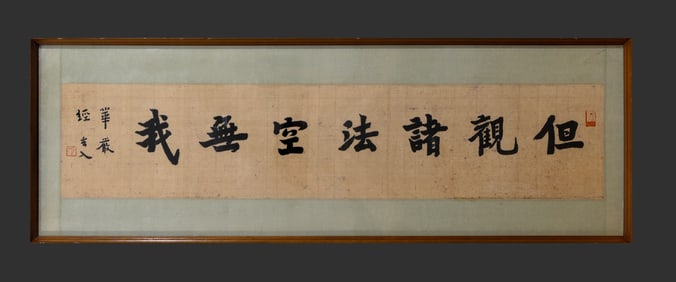 但觀諸法空無我
華嚴
經